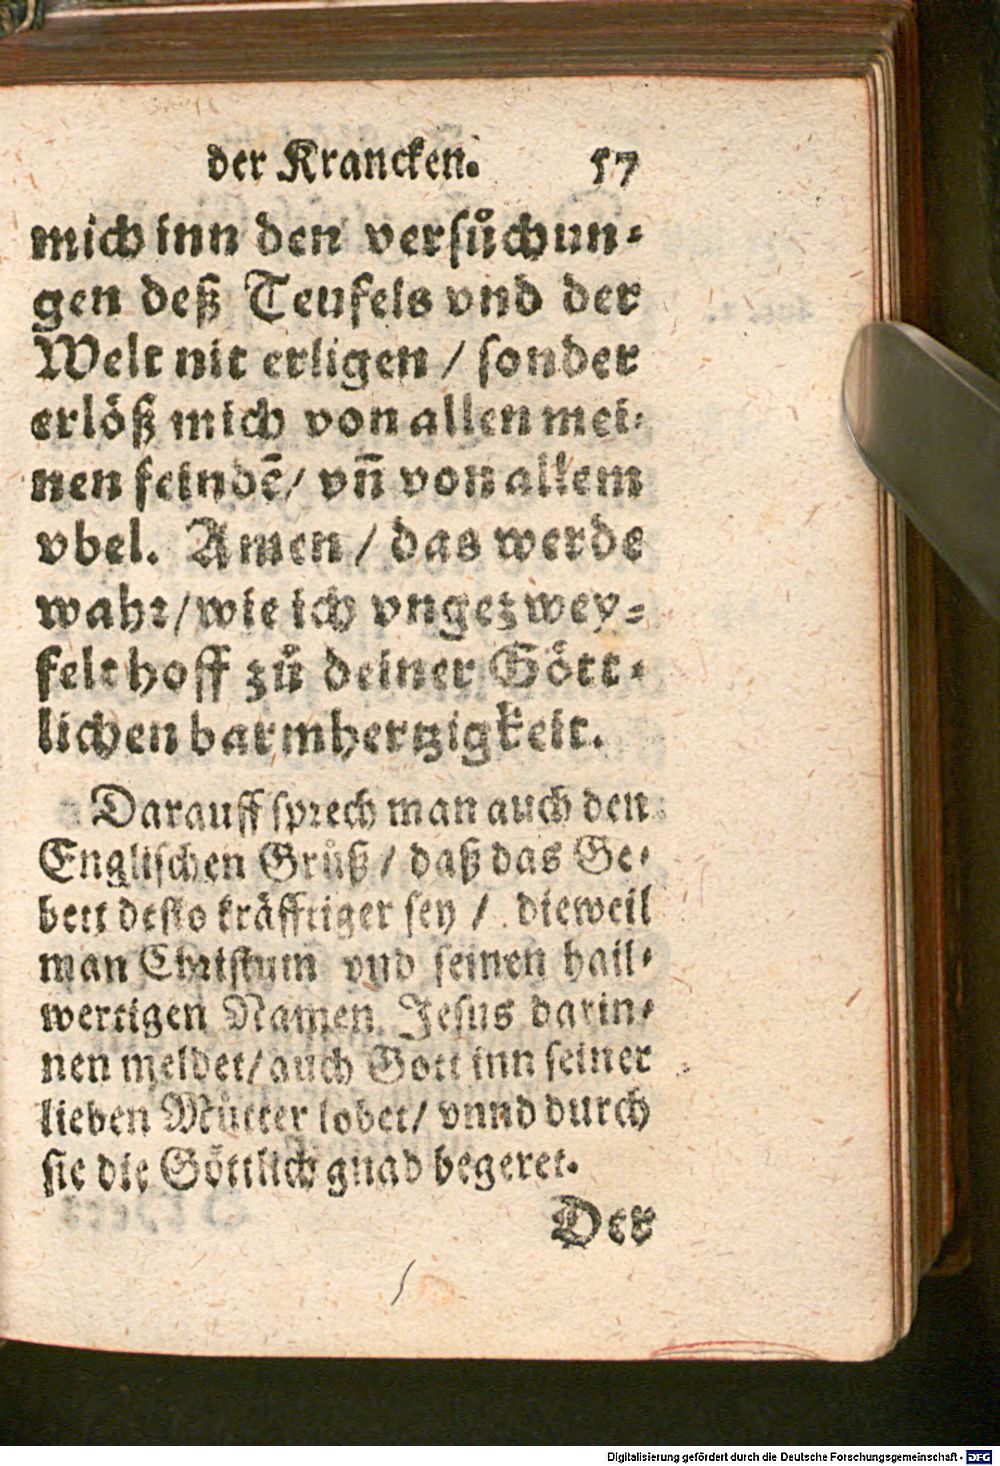 der Krancken. 57
mich inn den versůchun-
gen deß Teufels vnd der
Welt nit erligen / sonder
erlöß mich von allen mei-
nen feindẽ / vñ von allem
vbel. Amen / das werde
wahr / wie ich vngezwey-
felt hoff zů deiner Gött-
lichen barmhertzigkeit.
Darauff sprech man auch den
Englischen Grůß / daß das Ge-
bett desto kräfftiger sey / dieweil
man Christum vnd seinen hail-
wertigen Namen Jesus darin-
nen meldet / auch Gott inn seiner
lieben Můtter lobet / vnnd durch
sie die Göttlich gnad begeret.
Der
Digitalisierung gefördert durch die Deutsche Forschungsgemeinschaft - DFG